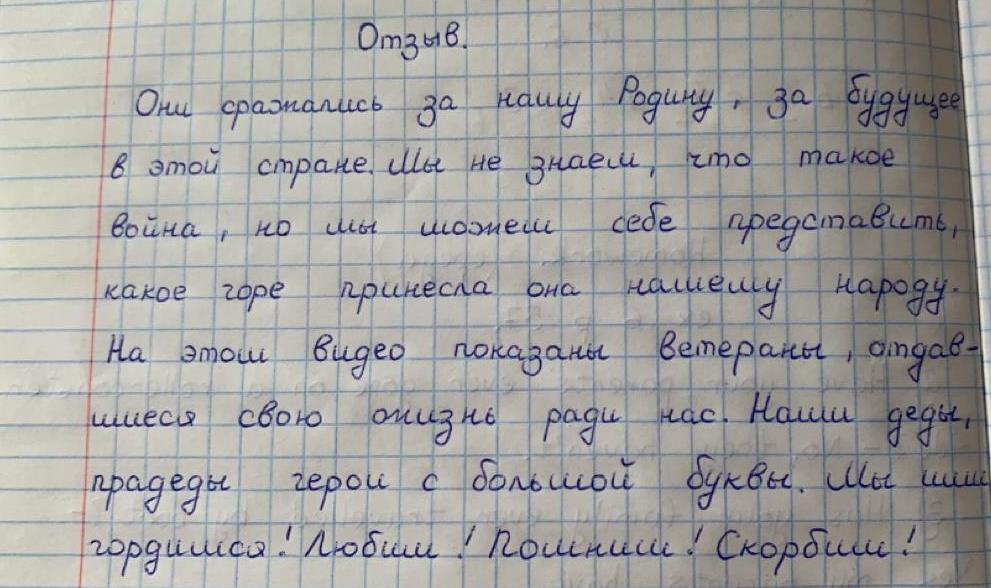 Отзыв.
Они сражались за нашу Родину, за будущее
в этой стране. Мы не знаем, что такое
война, но мы можем себе представить,
какое горе принесла она нашему народу.
На этом видео показаны ветераны, отдав-
шиеся свою жизнь ради нас. Наши деды,
прадеды герои с большой буквы. Мы ими
гордимся! Любим! Помним! Скорбим!